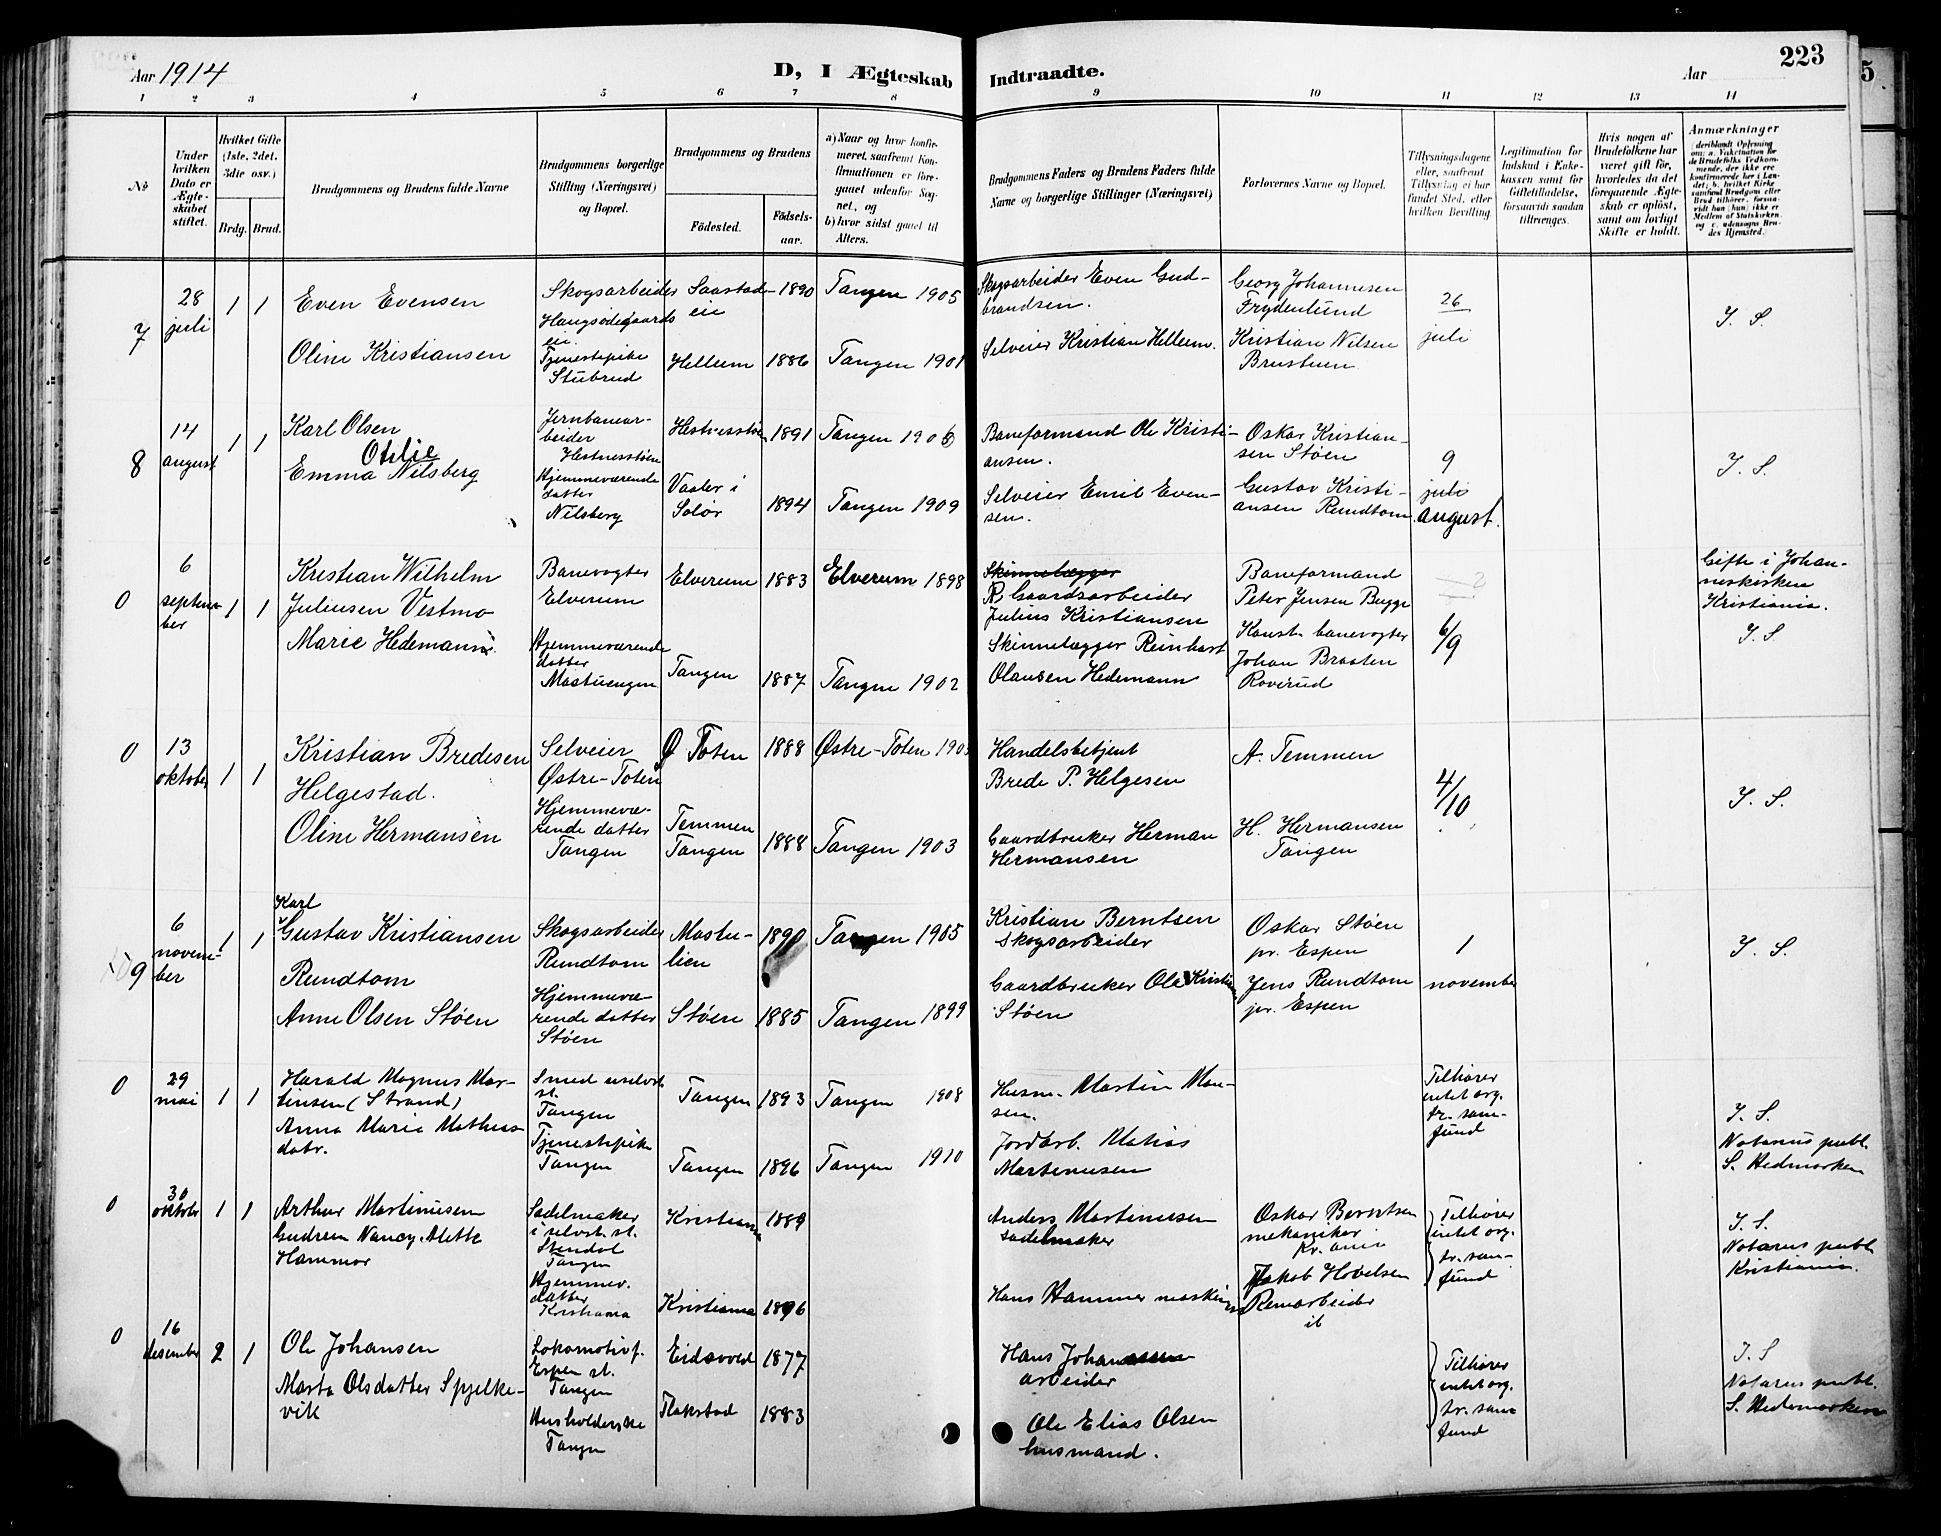 Aar 1914
D, I Ægteskab Indtraadte.
Aar
223
1 2 3 4 5 6 7 8 9 10 11 12 13 14
No
Under hvilken Dato er Ægteskabet stiftet.
Hvilket Gifte (1ste, 2det, 3die osv.)
Brdg. Brud.
Brudgommens og Brudens fulde Navne
Brudgommens borgerlige Stilling (Næringsvei) og Bopæl.
Brudgommens og Brudens
Födested. Födselsaar.
a) Naar og hvor konfirmeret, saafremt Konfirmationen er foregaaet udenfor Sognet, og
b) hvor sidst gaaet til Alters.
Brudgommens Faders og Brudens Faders fulde Navne og borgerlige Stillinger (Næringsvei)
Forlovernes Navne og Bopæl.
Tillysningsdagene eller, saafremt Tillysning ei har fundet Sted, efter hvilken Bevilling.
Legitimation for Indskud i Enkekassen samt for Giftetilladelse, forsaavidt saadan tiltrænges.
Hvis nogen af Brudefolkene har været gift för, hvorledes da det foregaaende Ægteskab er oplöst, samt om lovligt Skifte er holdt.
Anmærkninger
(deriblandt Oplysning om: a. Vakcination for de Brudefolks Vedkommende, der ikke ere konfirmerede her i Landet; b. hvilket Kirkesamfund Brudgom eller Brud tilhörer, forsaavidt han (hun) ikke er Medlem af Statskirken, og c. udensogns Brudes Hjemsted.)
7
28 juli
1 1
Even Evensen
Skogsarbeider
Saastadeie
1890
Tangen 1905
Skogsarbeider Even Gudbrandsen.
Georg Johannesen Frydenlund
26 juli
I. S.
Oline Kristiansen
Tjenestepike Stubrud
Hellum
1886
Tangen 1901
Selveier Kristian Hellum.
Kristian Nilsen Brustuen
8
14 august
1 1
Karl Olsen
Jernbanearbeider Hestnesstöen
1891
Tangen 1906
Baneformand Ole Kristiansen.
Oskar Kristiansen Stöen
9
juli
august.
I. S.
Otilie
Emma Nilsberg
Hjemmeværende datter Nilsberg
Vaaler i Solör
1894
Tangen 1909
Selveier Emil Evensen.
Gustav Kristiansen Rundtom
0
6 september
1 1
Kristian Wilhelm Juliusen Vestmo
Banevogter Elverum
Elverum
1883
Elverum 1898
Skinnelægger
Gaardsarbeider Julius Kristiansen
Baneformand Peter Jensen Bugge
6/9
Gifte i Johanneskirken Kristiania.
I. S.
Marie Hedemann.
Hjemmeværende datter Mastuengen
Tangen
1887
Tangen 1902
Skinnelægger Reinhart Olausen Hedemann
Konst. banevogter Johan Braaten Roverud
0
13 oktober
1 1
Kristian Bredesen Helgestad.
Selveier Østre-Toten
Ø Toten
1888
Østre-Toten
Handelsbetjent Brede P. Helgesen
A. Temmen
4/10
I. S.
Oline Hermansen
Hjemmeværende datter Tangen
Temmen Tangen
1888
Tangen 1903
Gaardbruker Herman Hermansen
H. Hermansen Tangen
9
6 november
1 1
Karl
Gustav Kristiansen Rundtom
Skogsarbeider Rundtom
Mastulien
1890
Tangen 1905
Kristian Berntsen skogsarbeider
Oskar Stöen pr. Espen
1 november
I. S.
Anne Olsen Stöen
Hjemmeværende datter Stöen
Stöen
1885
Tangen 1899
Gaardbruker Ole Kristian Stöen
Jens Rundtom pr. Espen
0
29 mai
1 1
Harald Magnus Martinsen (Strand)
Smed selvst. st. Tangen
Tangen
1893
Tangen 1908
Husm. Martin Monsen.
Tilhörer intet org. tr. samfund
I. S.
Notarius publ. S. Hedmarken
Anna Marie Mathiasdatr.
Tjenestepike Tangen
Tangen
1896
Tangen 1910
Jordarb. Matias Martinusen
0
30 oktober
1 1
Arthur Martinusen
Sadelmaker i selvst. st. Stendal Tangen
Kristiania
1889
Anders Martinusen sadelmaker
Oskar Berntsen mekaniker Kr.ania
Tilhörer intet org. tr. samfund
I. S.
Notarius publ. Kristiania.
Gudrun Nancy Alette Hammer
Hjemmev. datter Kristiania
Kristiania
1896
Hans Hammer
Jakob Hovelsen
0
16 desember
2 1
Ole Johansen
Lokomotivf. Espen st. Tangen
Eidsvold
1877
Hans Johansen arbeider
Tilhörer intet org. tr. samfund
I. S
Notarius publ. S. Hedemarken
Marta Olsdatter Spjelkevik
Husholderske Tangen
Flakstad
1883
Ole Elias Olsen husmand.